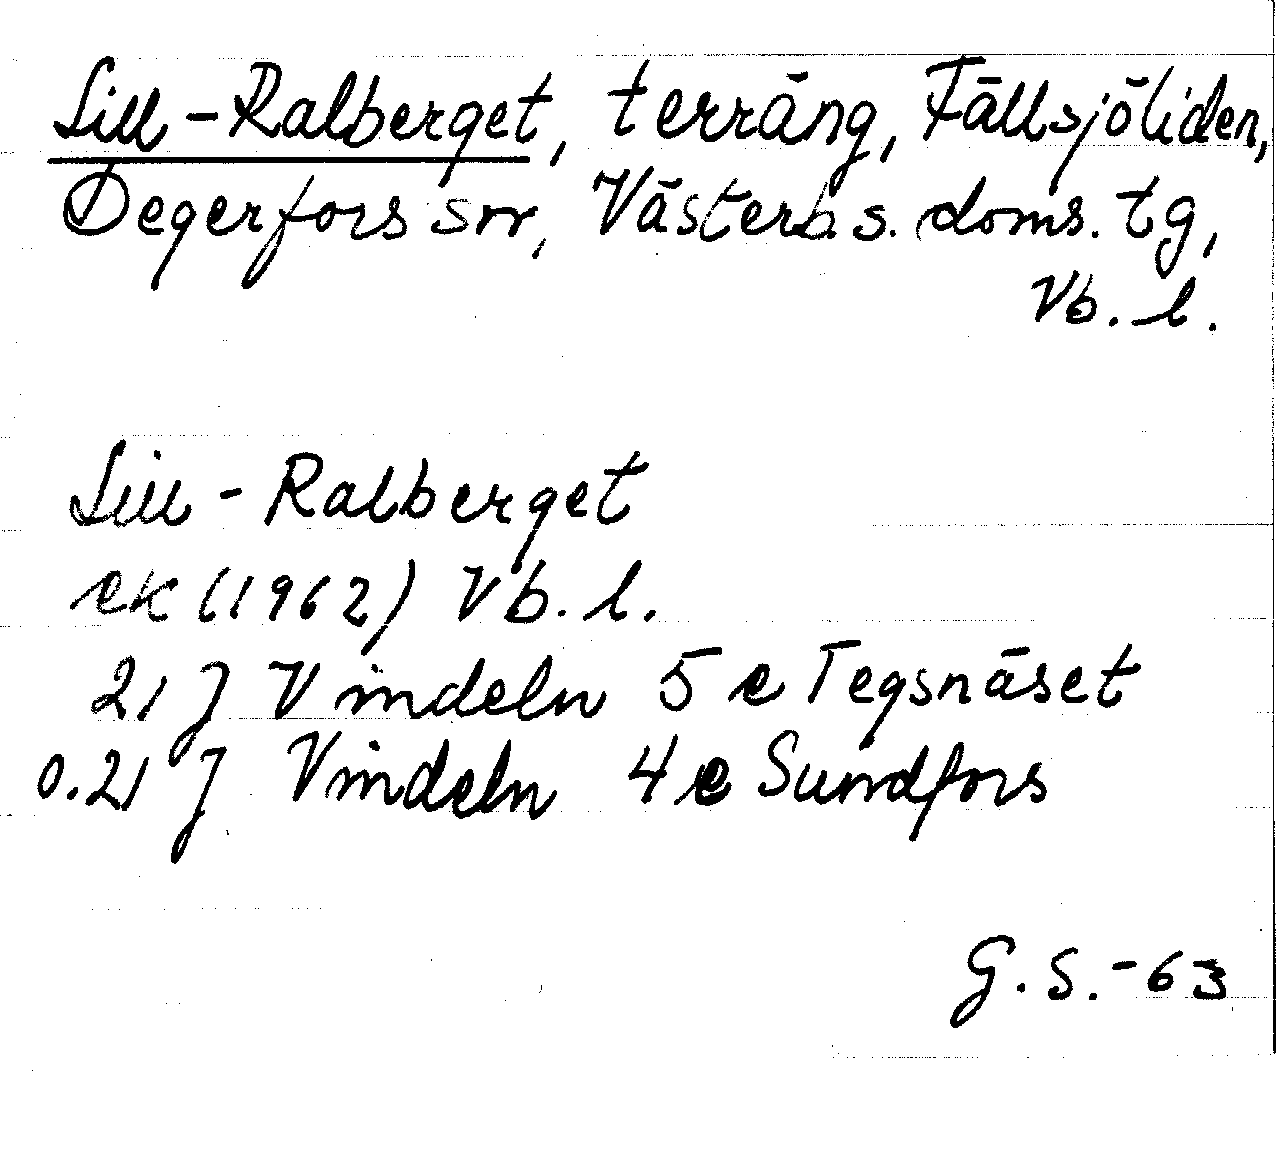 Lill-Ralberget, terräng, Fällsjöliden,
Degerfors sn, Västerb. s. doms. tg,
Vb. l.
Lill-Ralberget
ek (1962) Vb. l.
21 J Vindeln 5 e Tegsnäset
o. 21 J Vindeln 4 e Sundfors
G. S. -63